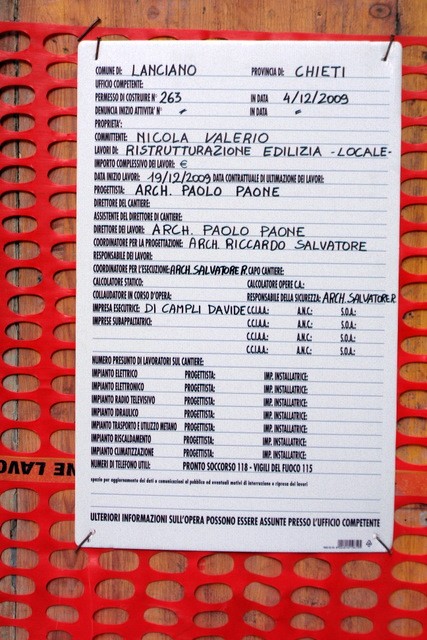 COMUNE DI: LANCIANO PROVINCIA DI: CHIETI
UFFICIO COMPETENTE:
PERMESSO DI COSTRUIRE N° 263 IN DATA 4/12/2009
DENUNCIA INIZIO ATTIVITA' N° - IN DATA -
PROPRIETA':
COMMITTENTE: NICOLA VALERIO
LAVORI DI: RISTRUTTURAZIONE EDILIZIA -LOCALE-
IMPORTO COMPLESSIVO DEI LAVORI: €
DATA INIZIO LAVORI: 19/12/2009 DATA CONTRATTUALE DI ULTIMAZIONE DEI LAVORI:
PROGETTISTA: ARCH. PAOLO PAONE
DIRETTORE DEL CANTIERE:
ASSISTENTE DEL DIRETTORE DI CANTIERE:
DIRETTORE DEI LAVORI: ARCH. PAOLO PAONE
COORDINATORE PER LA PROGETTAZIONE: ARCH. RICCARDO SALVATORE
RESPONSABILE DEI LAVORI:
COORDINATORE PER L'ESECUZIONE: ARCH. SALVATORE R. CAPO CANTIERE:
CALCOLATORE STATICO: CALCOLATORE OPERE C.A.:
COLLAUDATORE IN CORSO D'OPERA: RESPONSABILE DELLA SICUREZZA: ARCH. SALVATORE R.
IMPRESA ESECUTRICE: DI CAMPLI DAVIDE C.C.I.A.A.: A.N.C.: S.O.A.:
IMPRESE SUBAPPALTATRICI: C.C.I.A.A.: A.N.C.: S.O.A.:
C.C.I.A.A.: A.N.C.: S.O.A.:
C.C.I.A.A.: A.N.C.: S.O.A.:
NUMERO PRESUNTO DI LAVORATORI SUL CANTIERE:
IMPIANTO ELETTRICO PROGETTISTA: IMP. INSTALLATRICE:
IMPIANTO ELETTRONICO PROGETTISTA: IMP. INSTALLATRICE:
IMPIANTO RADIO TELEVISIVO PROGETTISTA: IMP. INSTALLATRICE:
IMPIANTO IDRAULICO PROGETTISTA: IMP. INSTALLATRICE:
IMPIANTO TRASPORTO E UTILIZZO METANO PROGETTISTA: IMP. INSTALLATRICE:
IMPIANTO RISCALDAMENTO PROGETTISTA: IMP. INSTALLATRICE:
IMPIANTO CLIMATIZZAZIONE PROGETTISTA: IMP. INSTALLATRICE:
NUMERI DI TELEFONO UTILI: PRONTO SOCCORSO 118 - VIGILI DEL FUOCO 115
spazio per aggiornamento dei dati o comunicazioni al pubblico ed eventuali motivi di interruzione e ripresa dei lavori
ULTERIORI INFORMAZIONI SULL'OPERA POSSONO ESSERE ASSUNTE PRESSO L'UFFICIO COMPETENTE
NE LAVO